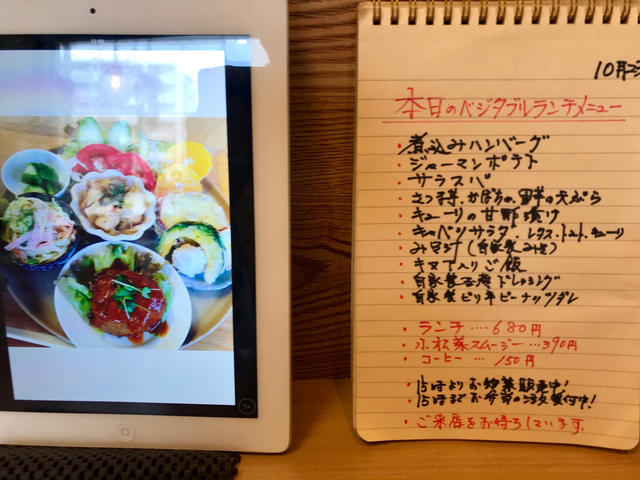 10月23
本日のベジタブルランチメニュー
・煮込みハンバーグ
・ジャーマンポテト
・サラスパ
・さつま芋、かぼちゃ、里芋の天ぷら
・キューリの甘酢漬け
・キャベツサラダ、レタス、トマト、キューリ
・みそ汁(自家製みそ)
・キヌア入りご飯
・自家製玉葱ドレッシング
・自家製ピリ辛ピーナッツダレ
・ランチ‥‥680円
・小松菜スムージー‥‥390円
・コーヒー‥‥150円
・15時よりお惣菜販売中!
・15時までお弁当のご注文受付中!
・ご来店をお待ちしています。